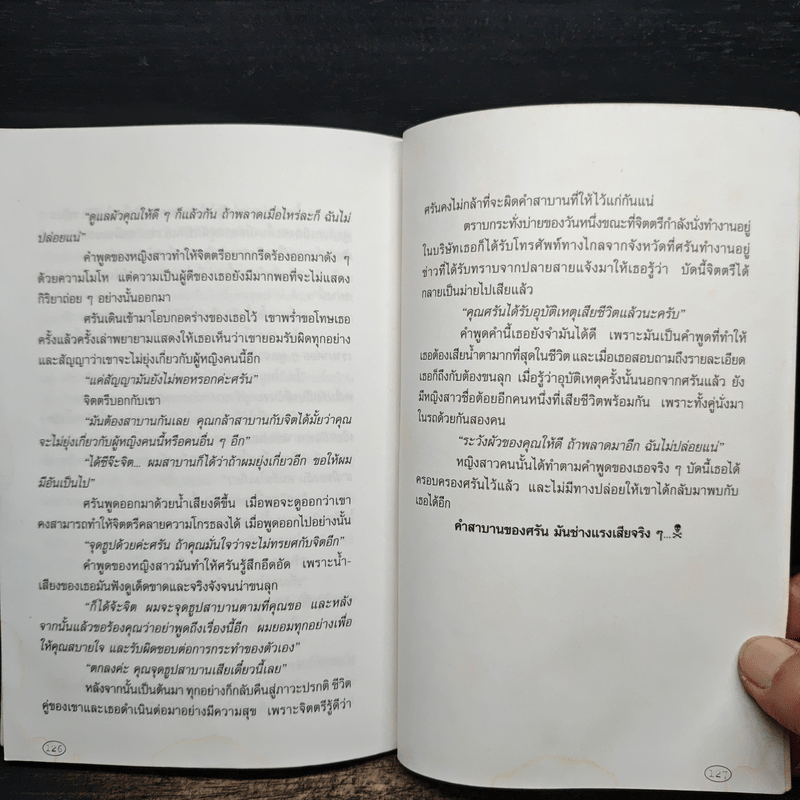 “ดูแลผัวคุณให้ดี ๆ ก็แล้วกัน ถ้าพลาดเมื่อไหร่ละก็ ฉันไม่
ปล่อยแน่”
คำพูดของหญิงสาวทำให้จิตตรีอยากกรีดร้องออกมาดัง ๆ
ด้วยความโมโห แต่ความเป็นผู้ดีของเธอยังมีมากพอที่จะไม่แสดง
กิริยาถ่อย ๆ อย่างนั้นออกมา
ศรันเดินเข้ามาโอบกอดร่างของเธอไว้ เขาพร่ำขอโทษเธอ
ครั้งแล้วครั้งเล่าพยายามแสดงให้เธอเห็นว่าเขายอมรับผิดทุกอย่าง
และสัญญาว่าเขาจะไม่ยุ่งเกี่ยวกับผู้หญิงคนนี้อีก
“แค่สัญญามันยังไม่พอหรอกค่ะศรัน”
จิตตรีบอกกับเขา
“มันต้องสาบานกันเลย คุณกล้าสาบานกับจิตได้มั้ยว่าคุณ
จะไม่ยุ่งเกี่ยวกับผู้หญิงคนนี้หรือคนอื่น ๆ อีก”
“ได้ซีจ๊ะจิต... ผมสาบานก็ได้ว่าถ้าผมยุ่งเกี่ยวอีก ขอให้ผม
มีอันเป็นไป”
ศรันพูดออกมาด้วยน้ำเสียงดีขึ้น เมื่อพอจะดูออกว่าเขา
คงสามารถทำให้จิตตรีคลายความโกรธลงได้ เมื่อพูดออกไปอย่างนั้น
“จุดธูปด้วยค่ะศรัน ถ้าคุณมั่นใจว่าจะไม่ทรยศกับจิตอีก”
คำพูดของหญิงสาวมันทำให้ศรันรู้สึกอึดอัด เพราะน้ำ-
เสียงของเธอมันฟังดูเด็ดขาดและจริงจังจนน่าขนลุก
“ก็ได้จ้ะจิต ผมจะจุดธูปสาบานตามที่คุณขอ และหลัง
จากนั้นแล้วขอร้องคุณว่าอย่าพูดถึงเรื่องนี้อีก ผมยอมทุกอย่างเพื่อ
ให้คุณสบายใจ และรับผิดชอบต่อการกระทำของตัวเอง”
“ตกลงค่ะ คุณจุดธูปสาบานเสียเดี๋ยวนี้เลย”
หลังจากนั้นเป็นต้นมา ทุกอย่างก็กลับคืนสู่ภาวะปรกติ ชีวิต
คู่ของเขาและเธอดำเนินต่อมาอย่างมีความสุข เพราะจิตตรีรู้ดีว่า
126
ศรันคงไม่กล้าที่จะผิดคำสาบานที่ให้ไว้แก่กันแน่
ตราบกระทั่งบ่ายของวันหนึ่งขณะที่จิตตรีกำลังนั่งทำงานอยู่
ในบริษัทเธอก็ได้รับโทรศัพท์ทางไกลจากจังหวัดที่ศรันทำงานอยู่
ข่าวที่ได้รับทราบจากปลายสายแจ้งมาให้เธอรู้ว่า บัดนี้จิตตรีได้
กลายเป็นม่ายไปเสียแล้ว
“คุณศรันได้รับอุบัติเหตุเสียชีวิตแล้วนะครับ”
คำพูดคำนี้เธอยังจำมันได้ดี เพราะมันเป็นคำพูดที่ทำให้
เธอต้องเสียน้ำตามากที่สุดในชีวิต และเมื่อเธอสอบถามถึงรายละเอียด
เธอก็ถึงกับต้องขนลุก เมื่อรู้ว่าอุบัติเหตุครั้งนั้นนอกจากศรันแล้ว ยัง
มีหญิงสาวชื่อต้อยอีกคนหนึ่งที่เสียชีวิตพร้อมกัน เพราะทั้งคู่นั่งมา
ในรถด้วยกันสองคน
“ระวังผัวของคุณให้ดี ถ้าพลาดมาอีก ฉันไม่ปล่อยแน่”
หญิงสาวคนนั้นได้ทำตามคำพูดของเธอจริง ๆ บัดนี้เธอได้
ครอบครองศรันไว้แล้ว และไม่มีทางปล่อยให้เขาได้กลับมาพบกับ
เธอได้อีก
คำสาบานของศรัน มันช่างแรงเสียจริง ๆ...☠
127